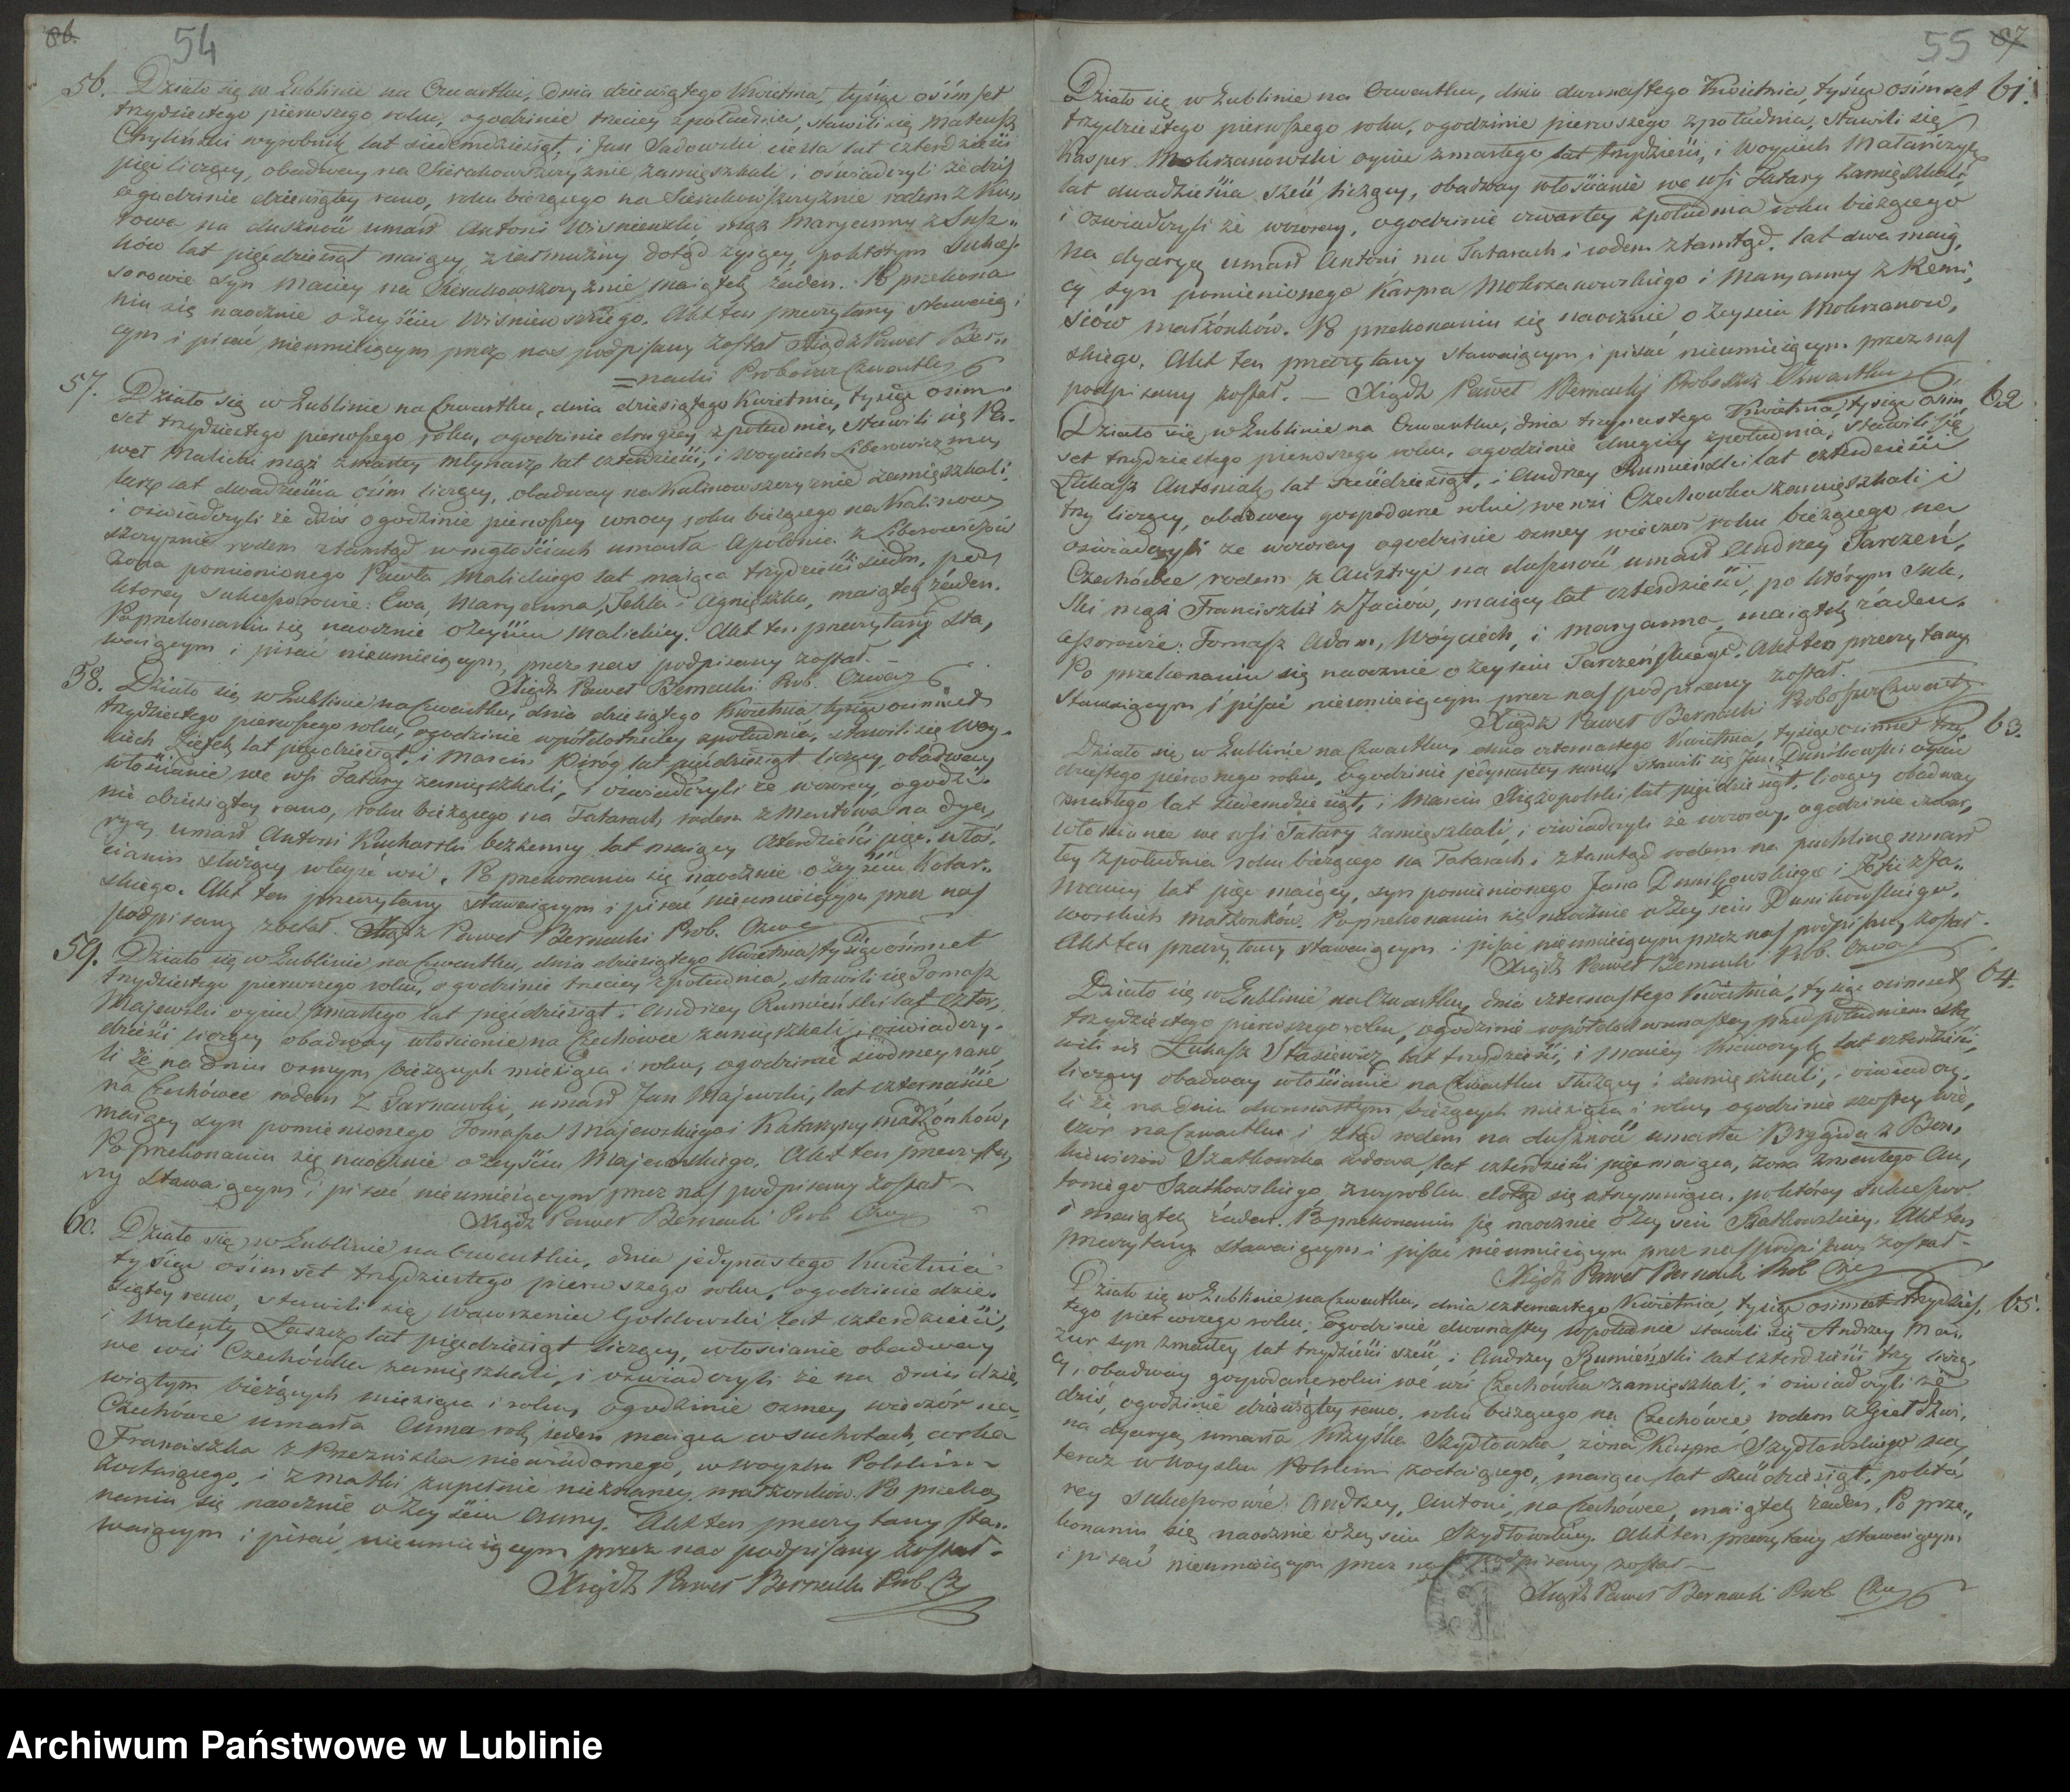 86.
54
56. Działo się w Lublinie na Czwartku, dnia dziewiątego Kwietnia, tysiąc ośimset
trzydziestego pierwszego roku, o godzinie trzeciey z południa, stawili się Mateusz
Chyliński wyrobnik lat siedemdziesiąt, i Jan Sadowski cieśla lat czterdzieści
pięć liczący, obadway na Sierakowszczyznie zamięszkali i oświadczyli że dziś
o godzinie dziewiątey rano, roku bieżącego na Sierakowszczyznie rodem z
na duszność umarł Antoni Wisniewski mąż Maryanny z
lat pięćdziesiąt maiący z iałmużny dotąd żyiący, po którym Sukces¬
sorowie syn Maciey na Sierakowszczyznie maiątek żaden. Po przekona
niu się naocznie o zeyściu Wisniewskiego. Akt ten przeczytany stawaią¬
cym i pisać nieumieiącym przez nas podpisany został Xiądz Paweł Ber¬
=nacki Proboszcz Czwartku
57. Działo się w Lublinie na Czwartku, dnia dziesiątego Kwietnia, tysiąc ośim¬
set trzydziestego pierwszego roku, o godzinie drugiey z południa, stawili się Pa¬
weł Malicki mąż zmarłey młynarz lat czterdzieści, i Woyciech Liberowicz mu
larz lat dwadzieścia ośim liczący, obadway na Kalinowszczyznie zamięszkali,
i oświadczyli że dziś o godzinie pierwszey w nocy roku bieżącego na Kalinow
szczyznie rodem ztamtąd w mgłościach umarła Apolonia z Liberowiczów
żona pomienionego Pawła Malickiego lat maiąca trzydzieści siedm, po
ktorey sukcessorowie: Ewa, Maryanna, Tekla i Agnieszka, maiątek żaden.
Po przekonaniu się naocznie o zeyściu Malickiey. Akt ten przeczytany sta,
waiącym i pisać nieumieiącym, przez nas podpisany został. —
Xiądz Paweł Bernacki Prob. Czwar
58. Działo się w Lublinie na Czwartku, dnia dziesiątego Kwietnia tysiąc ośimset
trzydziestego pierwszego roku, o godzinie wpół do trzeciey z południa, stawili się Woy¬
ciech lat pięćdziesiąt, i Marcin Piróg lat pięćdziesiąt liczący, obadway
włościanie we wsi Tatary zamięszkali, i oświadczyli że wczoray, o godzi¬
nie dziesiątey rano, roku bieżącego na Tatarach rodem z Mentowa na dya,
ryą umarł Antoni Kucharski bezżenny lat maiący czterdzieści pięć, włoś¬
cianin służący w teyże wsi. Po przekonaniu się naocznie o zeyściu
skiego. Akt ten przeczytany stawaiącym i pisać nieumieiącym przez nas
podpisany został. Xiądz Paweł Bernacki Prob. Czwa
59. Działo się w Lublinie na Czwartku, dnia dziesiątego Kwietnia tysiąc ośimset
trzydziestego pierwszego roku, o godzinie trzeciey z południa, stawili się Tomasz
Majewski oyciec zmarłego lat pięćdziesiąt i Andrzey Rumieński lat czter,
dzieści liczący obadway włościanie na Czechówce zamięszkali, i oświadczy¬
li że na dniu osmym bieżących miesiąca i roku, o godzinie siódmey rano
na Czechówce rodem z Tarnawki, umarł Jan Majewski, lat czternaście
maiący syn pomienionego Tomasza Majewskiego i Katarzyny małżonków,
Po przekonaniu się naocznie o zeyściu Majewskiego. Akt ten przeczyta
ny stawaiącym i pisać nieumieiącym przez nas podpisany został —
Xiądz Paweł Bernacki Prob Czw
60. Działo się w Lublinie na Czwartku, dnia jedynastego Kwietnia
tysiąc ośimset trzydziestego pierwszego roku, o godzinie dzie¬
siątey rano, stawili się Wawrzeniec Gołdowski lat czterdzieści,
i Walenty Łaszcz lat pięćdziesiąt liczący, włościanie obadway
we wsi Czechówka zamięszkali, i oświadczyli że na dniu dzie,
wiątym bieżących miesiąca i roku, o godzinie osmey wieczór na
Czechówce umarła Anna rok jeden maiąca w suchotach, corka
Franciszka z Przezwiska niewiadomego, w woysku Polskim —
zostaiącego, i z matki zupełnie nieznaney małżonków. Po przeko
naniu się naocznie o zeyściu Anny. Akt ten przeczytany sta¬
waiącym i pisać nieumieiącym przez nas podpisany został —
Xiądz Paweł Bernacki Prob. Cz
55 87
Działo się w Lublinie na Czwartku, dnia dwunastego Kwietnia, tysiąc ośimset 61.
trzydziestego pierwszego roku, o godzinie pierwszego z południa, stawili się
Kasper Mokrzanowski oyciec zmarłego lat trzydzieści, i Woyciech Matańczyk
lat dwadzieścia sześć liczący, obadway włościanie we wsi Tatary zamięszkali,
i oświadczyli że wczoray, o godzinie czwartey z południa roku bieżącego
na dyaryą umarł Antoni na Tatarach i rodem ztamtąd, lat dwa maią,
cy syn pomienionego Kaspra Mokrzanowskiego i Maryanny z Remi,
siów małżonków. Po przekonaniu się naocznie o zeyściu Mokrzanow,
skiego. Akt ten przeczytany stawaiącym i pisać nieumieiącym przez nas
podpisany został. — Xiądz Paweł Bernacki Proboszcz Czwartku
Działo się w Lublinie na Czwartku, dnia trzynastego Kwietnia, tysiąc ośim 62
set trzydziestego pierwszego roku, o godzinie drugiey z południa, stawili się
Łukasz Antoniak lat sześćdziesiąt, i Andrzey Rumieński lat czterdzieści
trzy liczący, obadway gospodarze rolni we wsi Czechowka zamięszkali i
oświadczyli że wczoray o godzinie osmey wieczór roku bieżącego na
Czechówce rodem z Austryi na duszność umarł Andrzey Tarzeń,
ski mąż Franciszki z Jaciów, maiący lat czterdzieści, po którym suk,
cessorowie: Tomasz Adam, Woyciech, i Maryanna, maiątek żaden.
Po przekonaniu się naocznie o zeyściu Tarzeńskiego. Akt ten przeczytany
stawaiącym i pisać nieumieiącym przez nas podpisany został.
Xiądz Paweł Bernacki Proboszcz Czwart
Działo się w Lublinie na Czwartku, dnia czternastego Kwietnia, tysiąc ośimset trzy, 63.
dziestego pierwszego roku, o godzinie jedynastey rano, stawili się Jan Dunikowski oyciec
zmarłego lat siedemdziesiąt, i Marcin Xiężopolski lat pięćdziesiąt, liczący obadway
włościanie we wsi Tatary zamięszkali, i oświadczyli że wczoray, o godzinie czwar,
tey z południa roku bieżącego na Tatarach i ztamtąd rodem na puchlinę umarł
Maciey lat pięć maiący, syn pomienionego Jana Dunikowskiego i Zofii z Ja¬
worskich małżonków. Po przekonaniu się naocznie o zeyściu Dunikowskiego.
Akt ten przeczytany stawaiącym i pisać nieumieiącym przez nas podpisany został.
Xiądz Paweł Bernacki Prob. Czwa
Działo się w Lublinie na Czwartku, dnia czternastego Kwietnia, tysiąc ośimset 64.
trzydziestego pierwszego roku, o godzinie wpół do dwunastey przed południem sta
wili się Łukasz Stasiewicz lat trzydzieści, i Maciey lat czterdzieści,
liczący obadway włościanie na Czwartku służący i zamięszkali, i oświadczy,
li że na dniu dwunastym bieżących miesiąca i roku, o godzinie szostey wie,
czor na Czwartku i ztąd rodem na duszność umarła Brygida z Ben,
kiewiczów Szatkowska wdowa, lat czterdzieści pięć maiąca, żona zmarłego An,
toniego Szatkowskiego z wyrobku dotąd się utrzymuiąca, po którey sukcessor.
i maiątek żaden. Po przekonaniu się naocznie o zeyściu Szatkowskiey. Akt ten
przeczytany stawaiącym i pisać nieumieiącym przez nas podpisany został —
Xiądz Paweł Bernacki Prob Czw
Działo się w Lublinie na Czwartku, dnia czternastego Kwietnia, tysiąc ośimset trzydzies, 65.
tego pierwszego roku, o godzinie dwunastey w południe stawili się Andrzey Ma¬
zur syn zmarłey lat trzydzieści sześć, i Andrzey Rumieński lat czterdzieści trzy licząc
cy, obadway gospodarze rolni we wsi Czechówka zamięszkali, i oświadczyli że
dziś, o godzinie dziewiątey rano, roku bieżącego na Czechówce, rodem z
na dyaryą umarła Szydłowska, żona Kaspra Szydłowskiego na
teraz w woysku Polskim zostaiącego, maiąca lat sześćdziesiąt, po któ,
rey sukcessorowie Andrzey, Antoni, na Czechówce, maiątek żaden. Po prze¬
konaniu się naocznie o zeyściu Szydłowskiey. Akt ten przeczytany stawaiącym
i pisać nieumieiącym przez nas podpisany został —
Xiądz Paweł Bernacki Prob Czw
Archiwum Państwowe w Lublinie